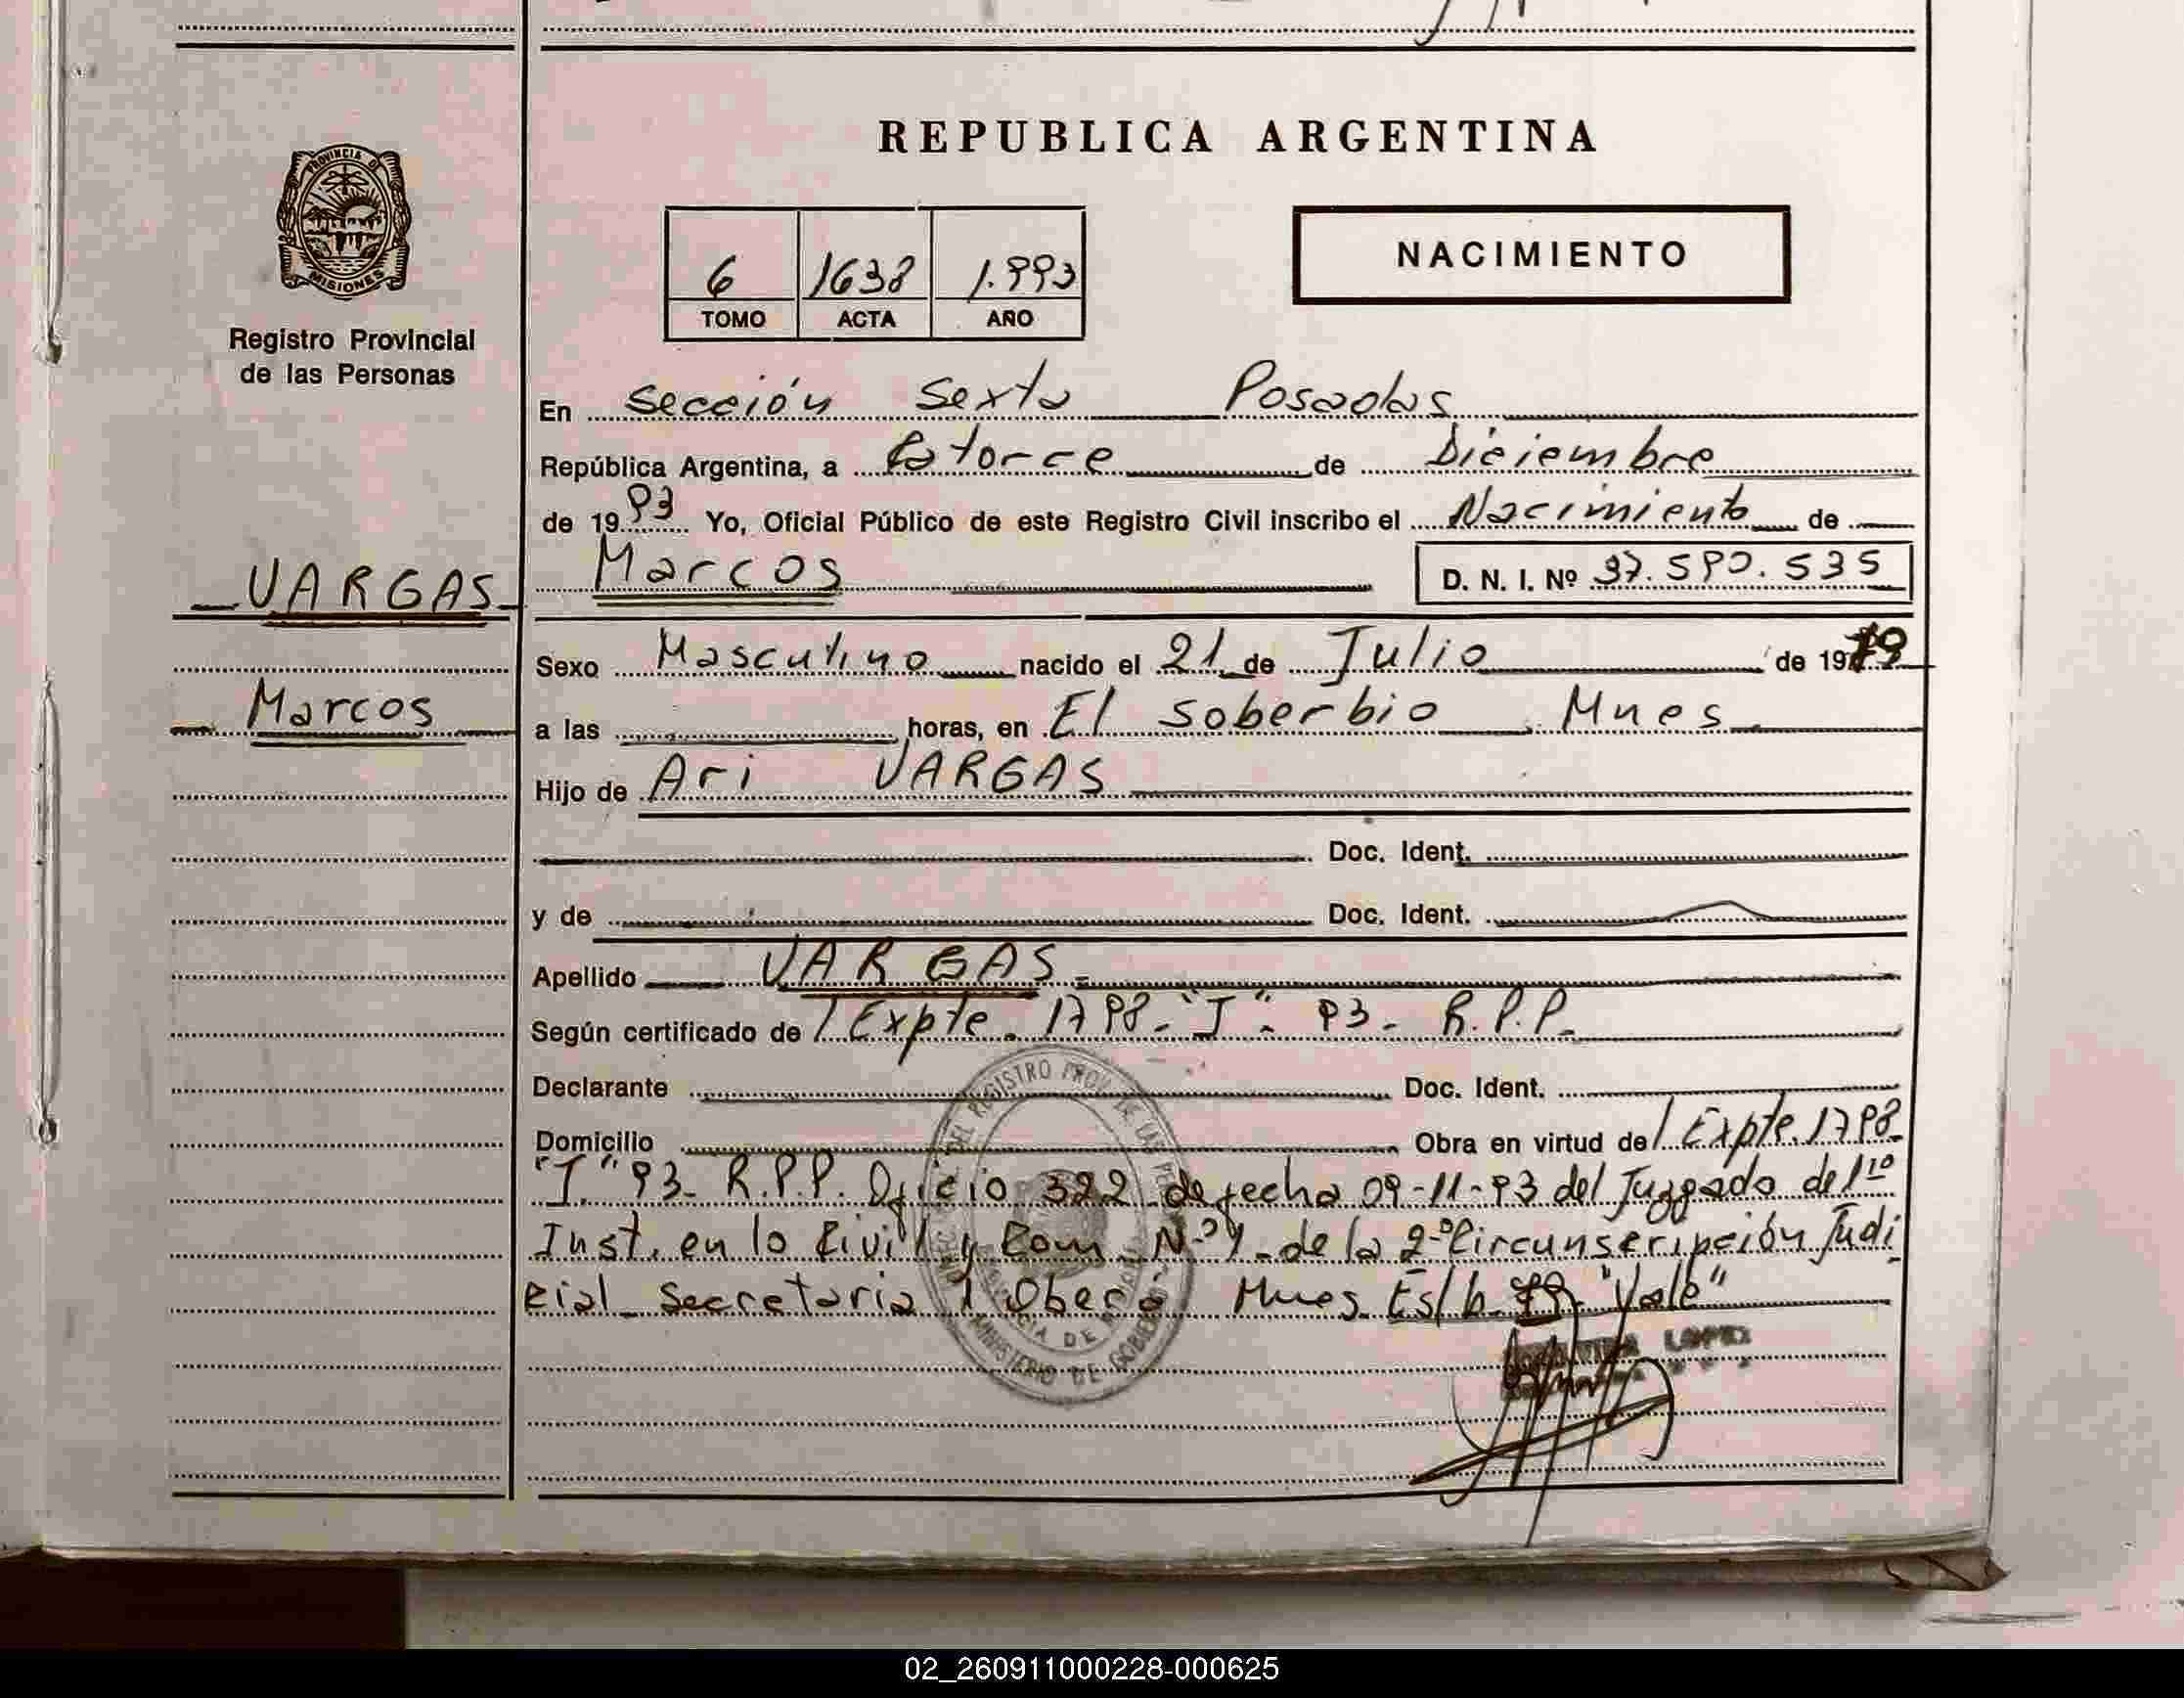 REPUBLICA ARGENTINA
PROVINCIA DE
MISIONES
Registro Provincial
de las Personas
6 1638 1.993
TOMO ACTA AÑO
NACIMIENTO
En Sección Sexta Posadas
República Argentina, a Catorce de Diciembre
de 1993 Yo, Oficial Público de este Registro Civil inscribo el Nacimiento de
VARGAS
Marcos D. N. I. Nº 37.590.535
Sexo Masculino nacido el 21 de Julio de 1979
Marcos
a las horas, en El Soberbio Mnes
Hijo de Ari VARGAS
Doc. Ident.
y de Doc. Ident.
Apellido VARGAS
Según certificado de / Expte. 1798-"J"-93- R.P.P.
Declarante Doc. Ident.
Domicilio Obra en virtud de / Expte. 1798
"J" 93- R.P.P. Oficio 322 de fecha 09-11-93 del Juzgado de 1ra
Inst. en lo Civil y Com. Nº 1 de la 2º Circunscripción Judi
cial Secretaria 1 Oberá Mnes. Es/b. 79- "Vale"
REGISTRO PROV. DE LAS
MINISTERIO DE GOBIERNO
LOPEZ
02_260911000228-000625